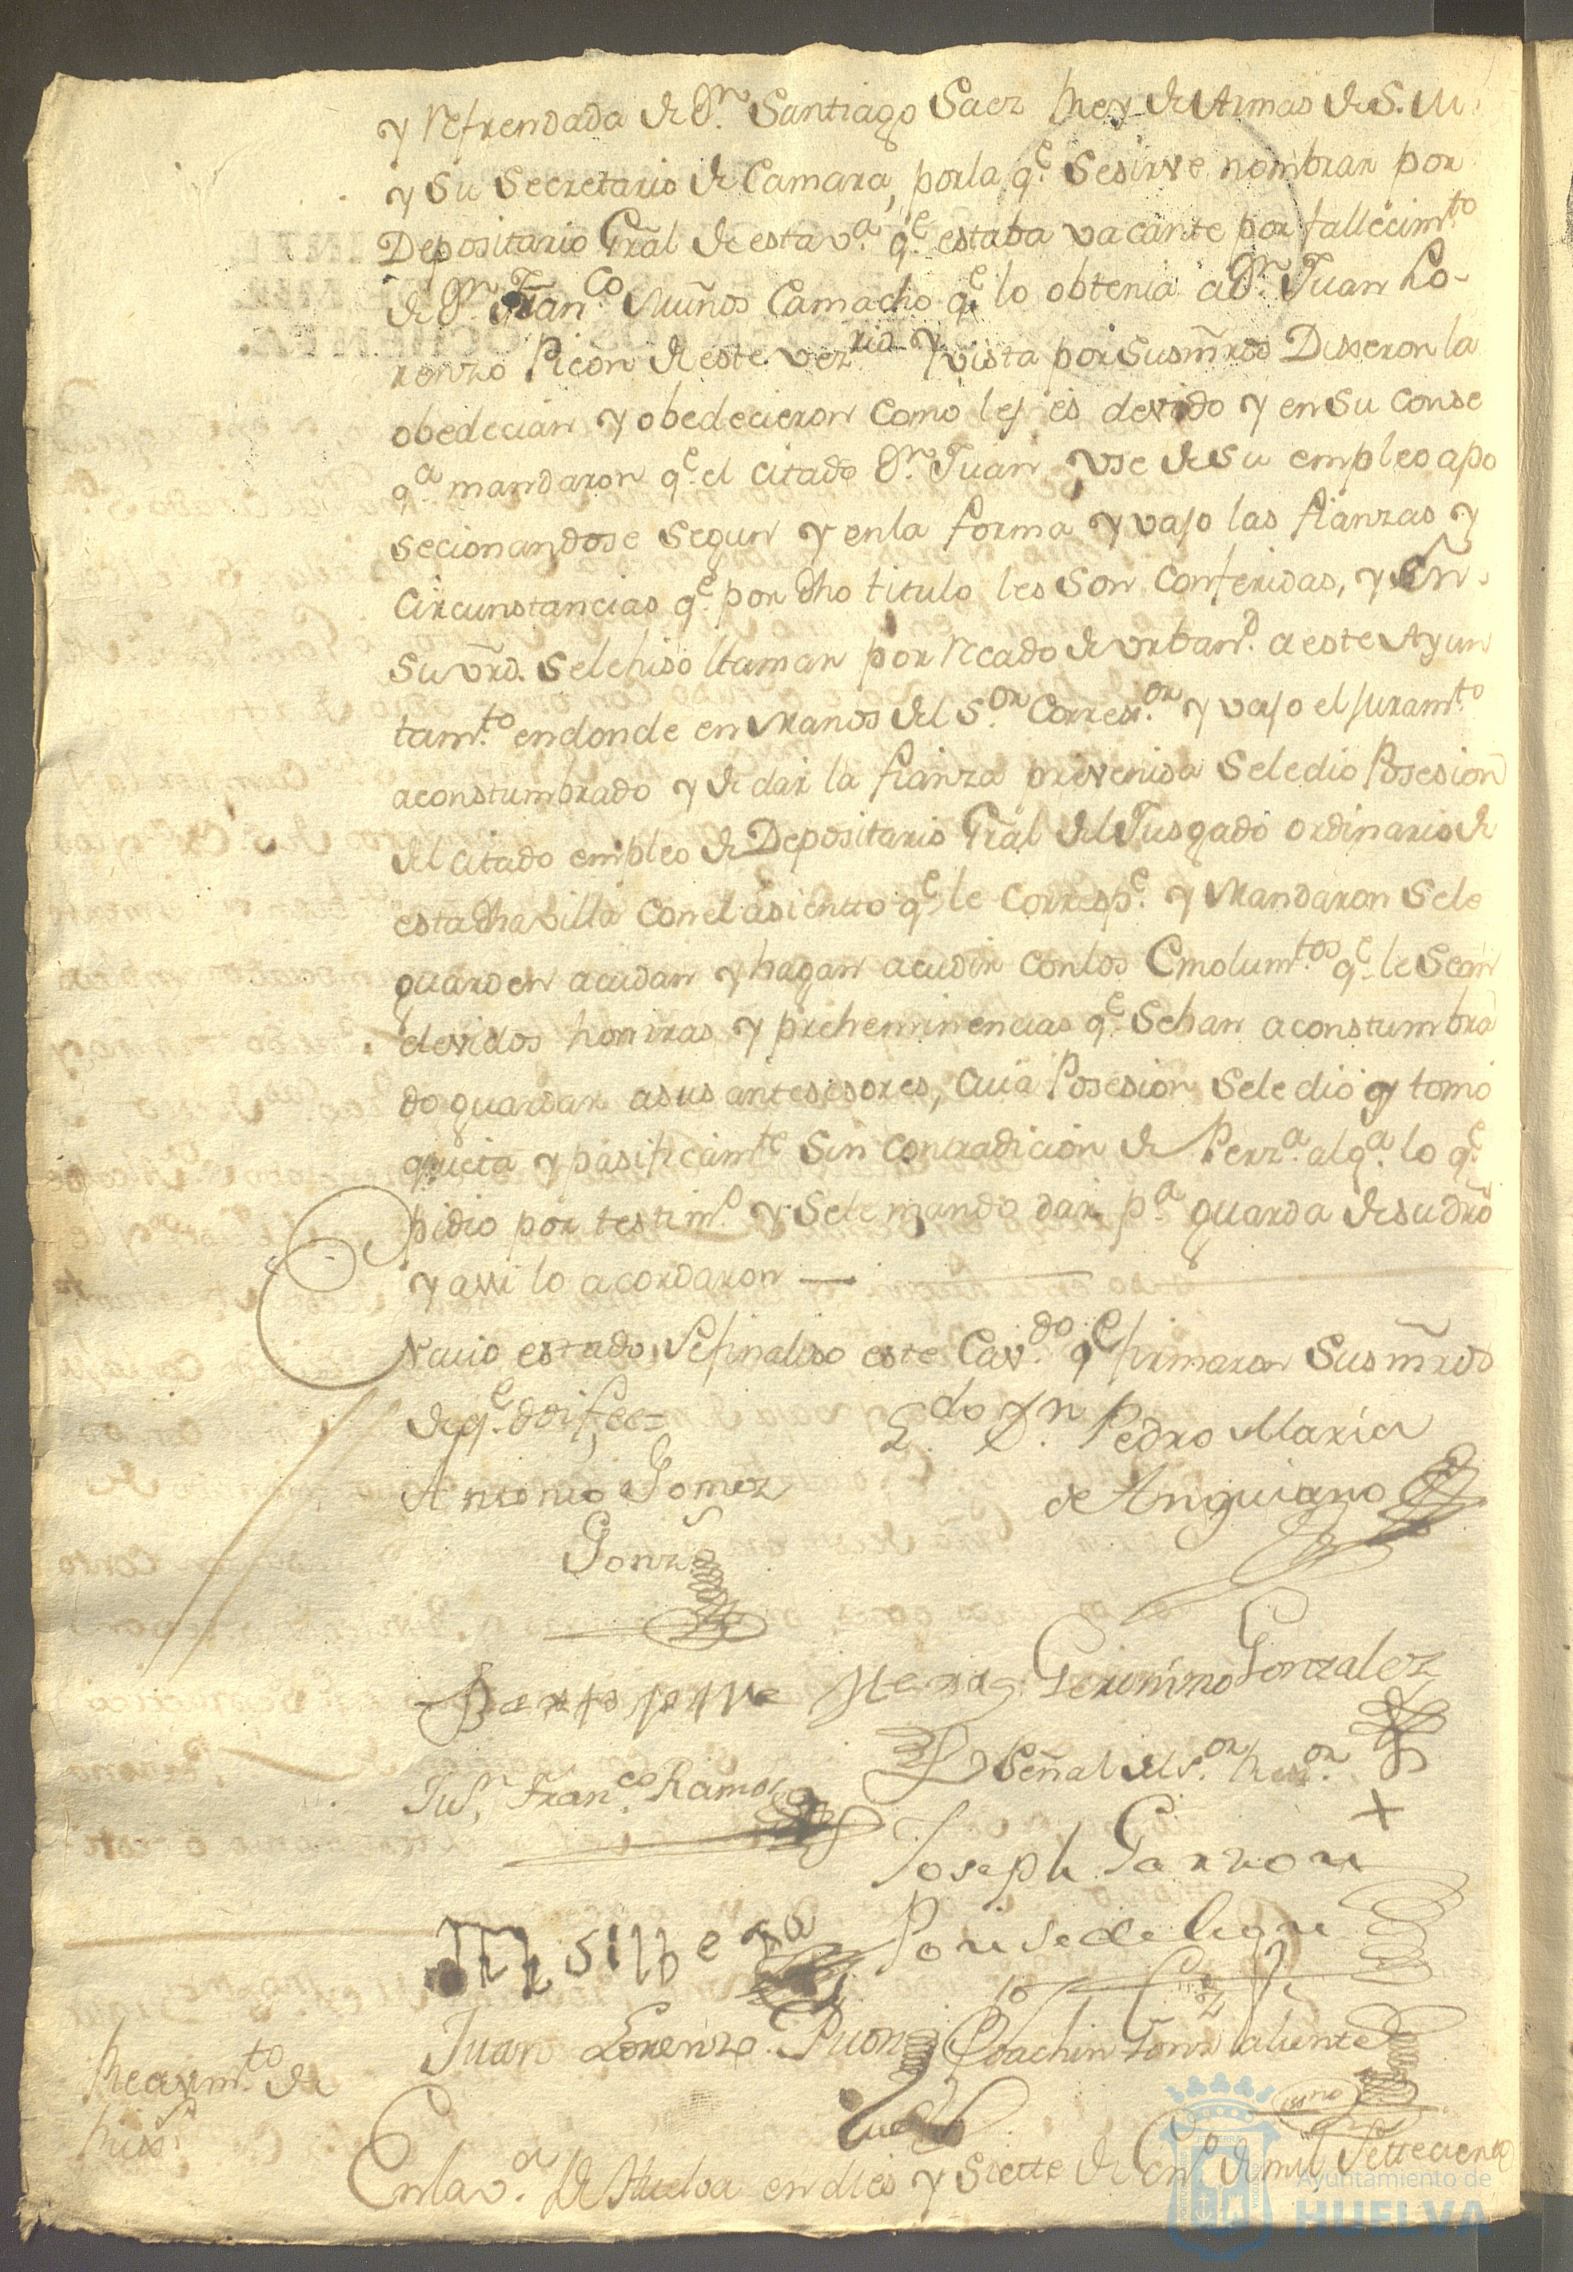 y Refrendada de Dn. Santiago Saez Rey de Armas de S. M.
y su Secretario de Camara, porla qe. se sirve nombrar por
Depositario Gral de esta va. qe. estaba vacante por fallecimto
de Dn. Franco. Muños Camacho qe lo obtenia a Dn. Juan Lo-
renzo Picon de este vezrio y vista por sus mrds Dixeron la
obedecian y obedecieron como les es devido y en su conse
qa. mandaron qe. el citado Dn. Juan use de su empleo apo
secionandose segun y enla forma y vajo las fianzas y
circunstancias qe. por dho titulo les son conferidas, y en
su vrd. sele hiso llamar por Recado de urband. a este Ayun
tamto. endonde en manos del Sor. Correxor. y vajo el juramto.
aconstumbrado y de dar la fianza prevenida sele dio Posesion
del citado empleo de Depositario Gral del Jusgado ordinario de
esta dha villa con el asientto qe. le correspe. y mandaron sele
guarden acudan y hagan acudir conlos Emolumtos. qe. le sean
devidos honrras y preheminencias qe. sehan aconstumbra
do guardar asus antesesores, cuia Posesion sele dio y tomo
quieta y pasificamte sin contradicion de Perza. alga. lo qe.
pidio por testimo. y sele mando dar pa. guarda desu dro
y assi lo acordaron —
N cuio estado se finaliso este Cavdo. qe firmaron sus mrds
de qe. doi fee=
Ldo Dn. Pedro Maria
de Anguiano
Antonio Gomez
Gonz
Geronimo Gonzalez
Señal del Sor. Rexor.
+
Juf. Franco. Ramos
Joseph Garzon
Ponse de leon
silbera
Juan Lorenzo Picon
Joachin Gonz valiente
esno
Recivmto. de
huiss
Enla va. de Huelva en dies y siette de Eno. de mil Settecientos
Ayuntamiento de
HUELVA